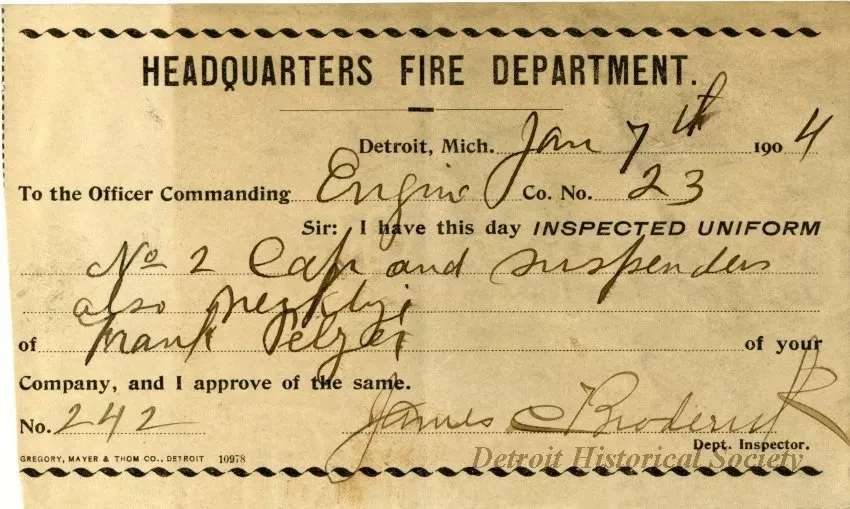 HEADQUARTERS FIRE DEPARTMENT.
Detroit, Mich. Jan 7th 1904
To the Officer Commanding Engine Co. No. 23
Sir: I have this day INSPECTED UNIFORM
No 2 Cap and suspenders
also necktie
of Frank Pelzer of your
Company, and I approve of the same.
No. 242 James C Broderick
Dept. Inspector.
GREGORY, MAYER & THOM CO., DETROIT 10978
Detroit Historical Society